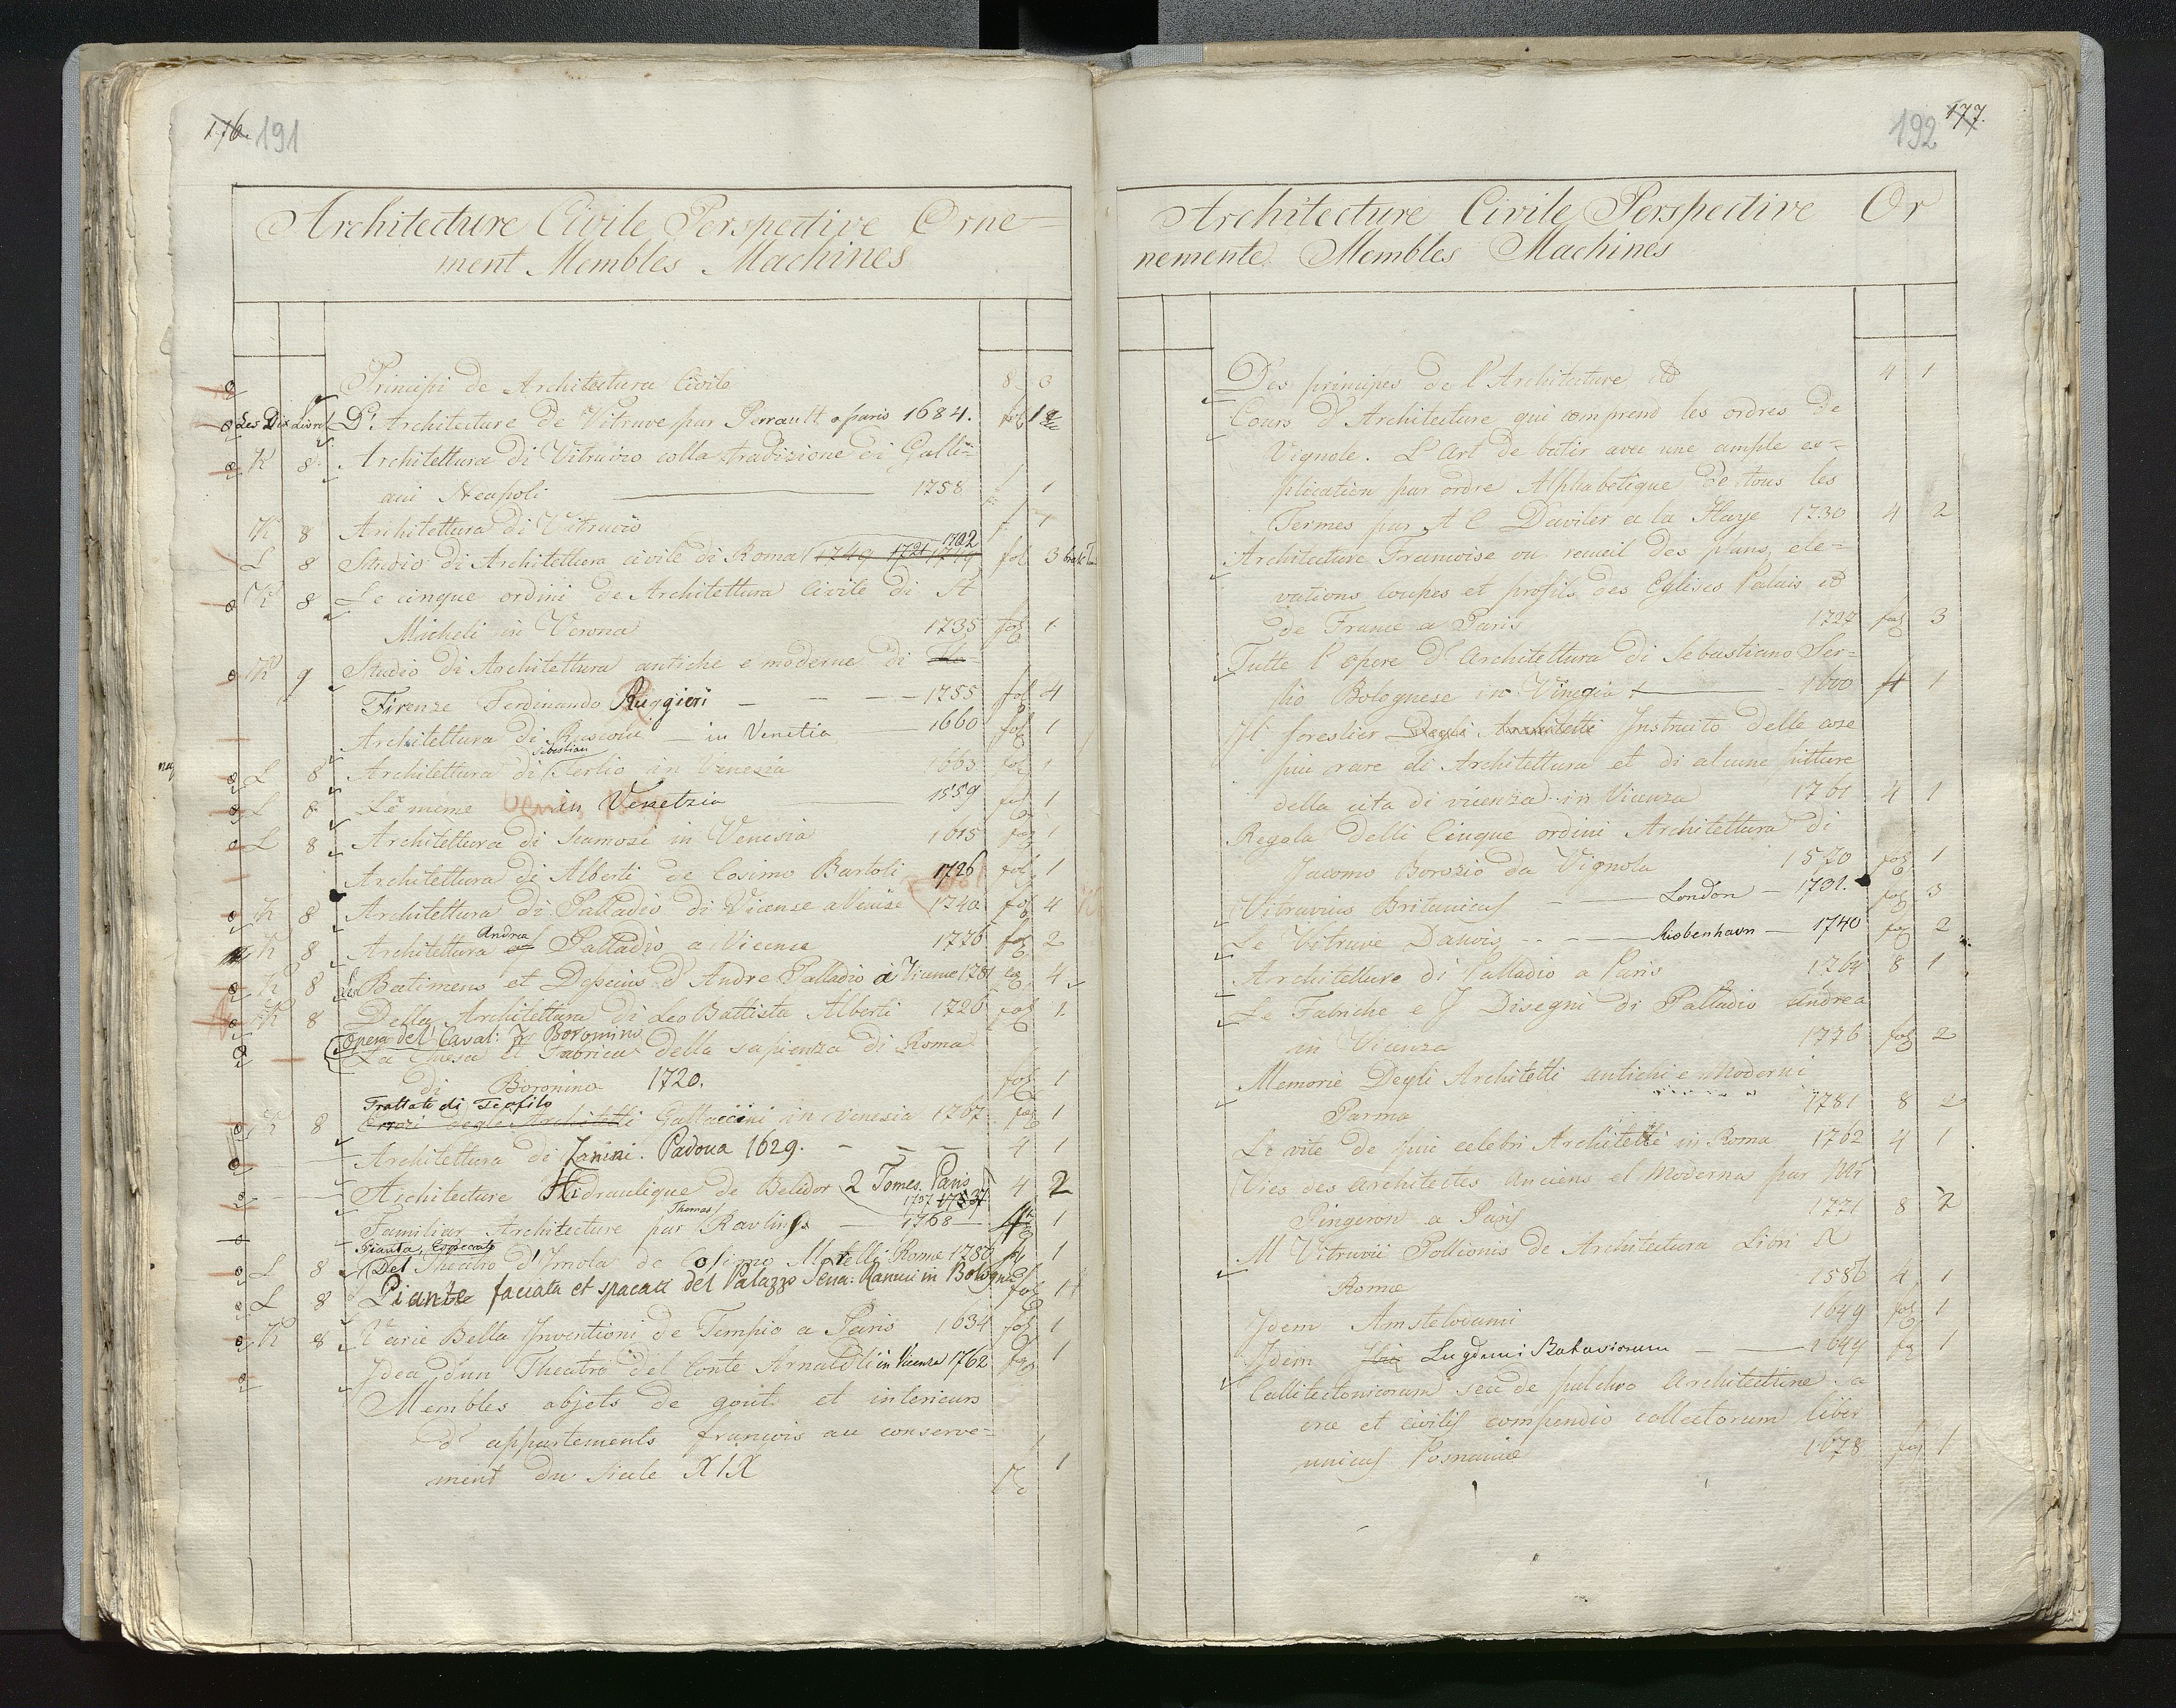 176. 191
Architecture Civile Perspective Orne=
ment Membles Machines
Principi de Architectura Civile 8 3
Les Dix Livres D'Architecture de Vitruve par Perrault a paris 1684. fol 1
K 8 Architettura di Vitruvio colla tradizione di Galli=
ani Neapoli 1758 1
K 8 Architettura di Vitruvio 1
1702
L 8 Studio di Architettura civile di Roma 1749 1721 1719 fol 3
K 8 Le cinque ordini de Architettura Civile di St
Micheli in Verona 1735 fol 1
K 9 Studio di Architettura antiche e moderne di
Firenze Ferdinando Ruggieri — — — 1755 fol 4
Architettura di Rusconi — in Venetia — 1660 fol 1
Sebestian
L 8 Architettura di Serlio in Venezia 1663 fol 1
L 8 Le même in Venetzia 1559 fol 1
L 8 Architettura di Scamozi in Venesia 1615 fol 1
Architettura di Alberti de Cosimo Bartoli 1726 fol 1
K 8 Architettura di Palladio di Vicense a Venise 1740 fol 4
Andrea
K 8 Architettura of Palladio a Vicence 1776 fol 2
K 8 Les Batimens et Desseins d'Andre Palladio à Vicence 1781 fol 4
K 8 Della Architettura di Leo Battista Alberti 1726 fol 1
Opera del Caval: Fr Boromino
La Chiesa et Fabrica della sapienza di Roma
di Boromino 1720. fol 1
Trattato di Teofilo
K 8 Errori degle Architetti Gallaccini in Venesia 1767 fol 1
Architettura di Zanini. Padoua 1629. — — — 4 1
Architecture Hidraulique de Belidor 2 Tomes. Paris 4 2
1737
Thomas
Familiar Architecture par Rawlins — 1768 — 4 1
Pianta, Spaccato
L 8 Del Theatro d'Imola de Cosimo Morelli Rome 1780 fol 1
L 8 Piante facciata et spacati del Palazzo Sena: Ranuci in Bologna fol 1
K 8 Varie Bella Inventioni de Tempio a Paris 1634 fol 1
Idea d'un Theatro del Conte Arnaldi in Vicenza 1762 fol 1
Membles objets de goût et interieurs
d'appartements françois au conserve=
ment du siecle XIX 1
192 177.
Architecture Civile Perspective Or
nemente Membles Machines
Des principes de l'Architecture etc 4 1
Cours d'Architecture qui comprend les ordres de
Vignole. L'Art de batir avec une ample ex=
plication par ordre Alphabetique de tous les
Termes par A C Daviler a la Haye 1730 4 2
Architecture Francoise ou recueil des plans, ele=
vations coupes et profils des Eglises Palais etc
de France a Paris 1727 fol 3
Tutte l'opere d'Architettura di Sebastiano Ser=
lio Bolognese in Vinegia 1600 4 1
Il forestier Degli Architetti Instruito delle cose
piu rare di Architettura et di alcune pitture
della cita di vicenza in Vicenza 1761 4 1
Regola delli Cinque ordini Architettura di
Jacomo Barozio da Vignola 1570 fol 1
Vitruvius Britanicus — — London — 1731. fol 3
Le Vitruve Danois — — Kiobenhavn — 1740 fol 2
Architetture di Palladio a Paris 1764 8 1
Le Fabriche e I Disegni di Palladio Andrea
in Vicenza 1776 fol 2
Memorie Degli Architetti antichi e Moderni
Parma 1781 8 2
Le vite de piu celebri Architetti in Roma 1762 4 1
Vies des Architectes Anciens et Moderna par Mr
Pingeron a Paris 1771 8 2
M Vitruvii Pollionis de Architectura Libri X
Romæ 1586 4 1
Idem Amstelodami 1649 fol 1
Idem Lugduni Bataviorum — 1649 fol 1
Callitectonicorum seu de pulchro Architecturæ sa
cræ et civilis compendio collectorum liber
unicus Posnaniæ 1678 fol 1